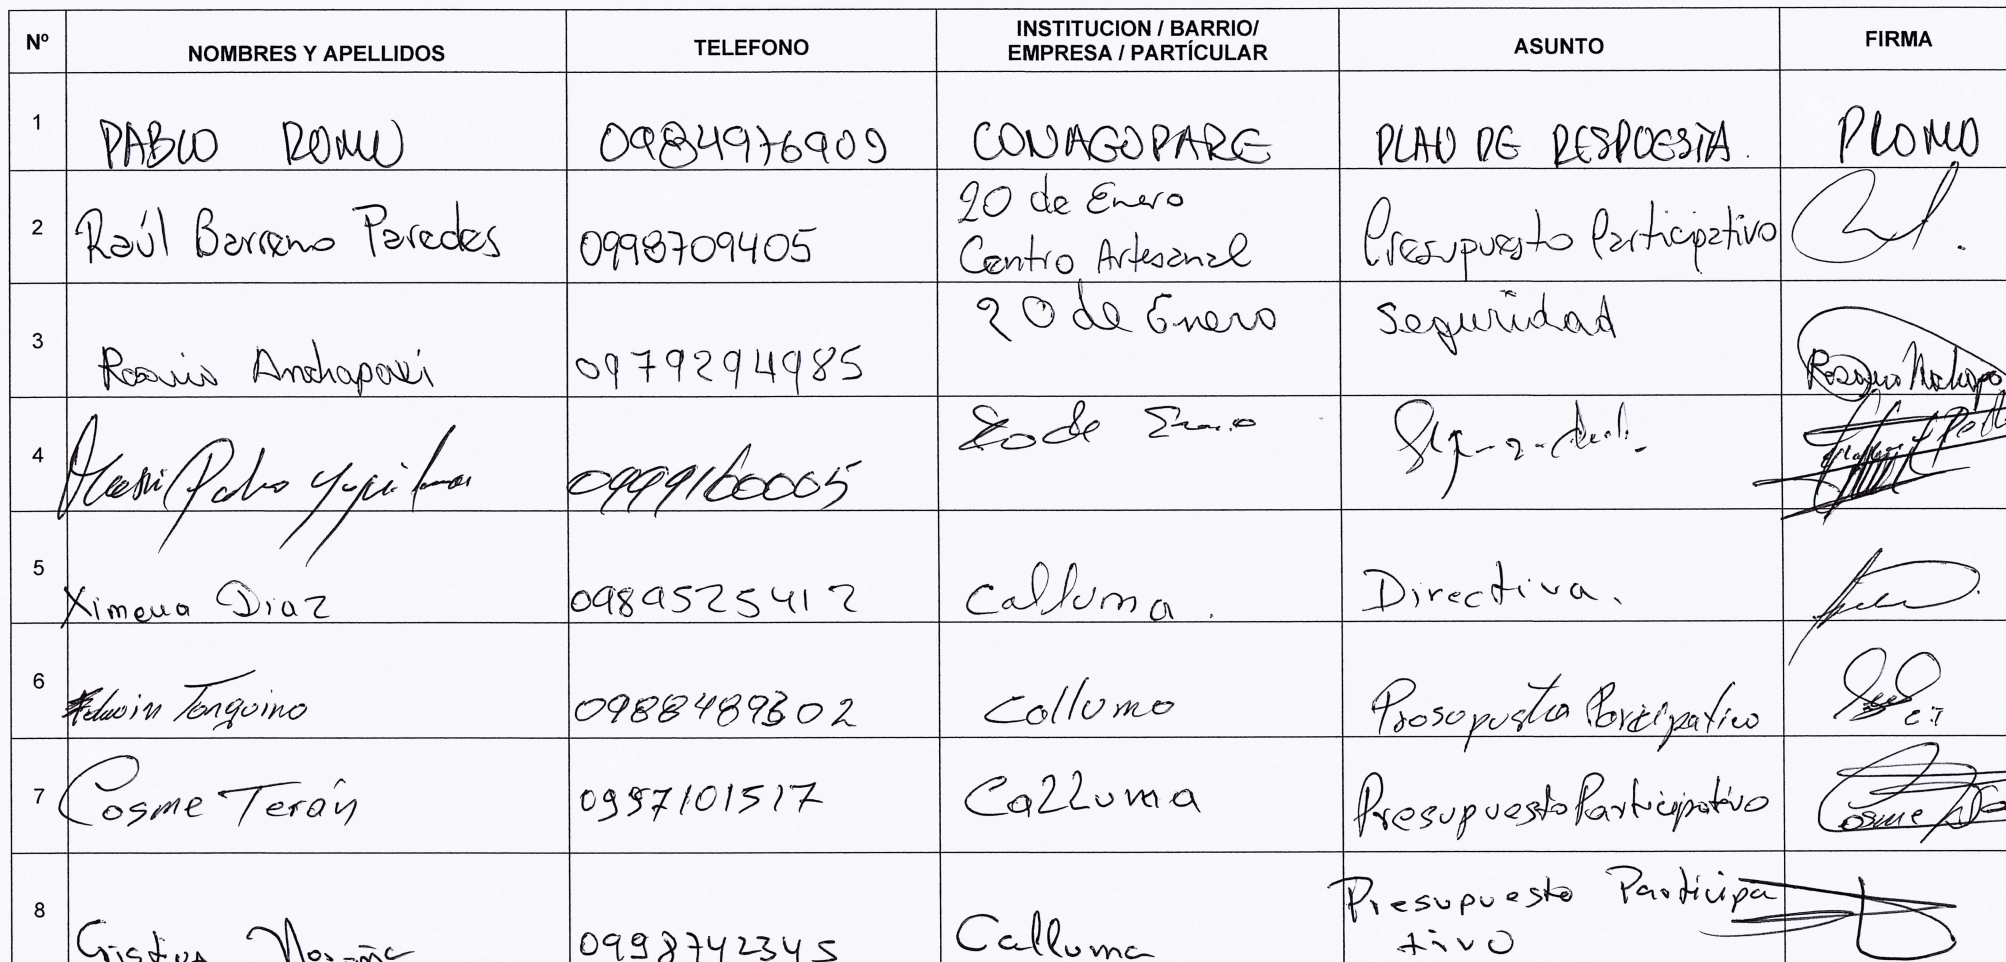 Nº NOMBRES Y APELLIDOS TELEFONO INSTITUCION / BARRIO/ EMPRESA / PARTÍCULAR ASUNTO FIRMA
1 PABLO ROMO 0984976909 CONAGOPARE PLAN DE RESPUESTA. PROMO
2 Raúl Barreno Paredes 0998709405 20 de Enero Centro Artesanal Presupuesto Participativo
3 Rosario 0979294985 20 de Enero Seguridad Rosario
4 Pedro 0999160005 20 de Enero
5 Ximena Diaz 0989525412 Calluma. Directiva.
6 Edwin Tonguino 0988489302 Collumo Prosopusto
7 Cosme Terán 0997101517 Calluma Presupuesto Participativo Cosme
8 0998742345 Calluma Presupuesto Participa
tivo